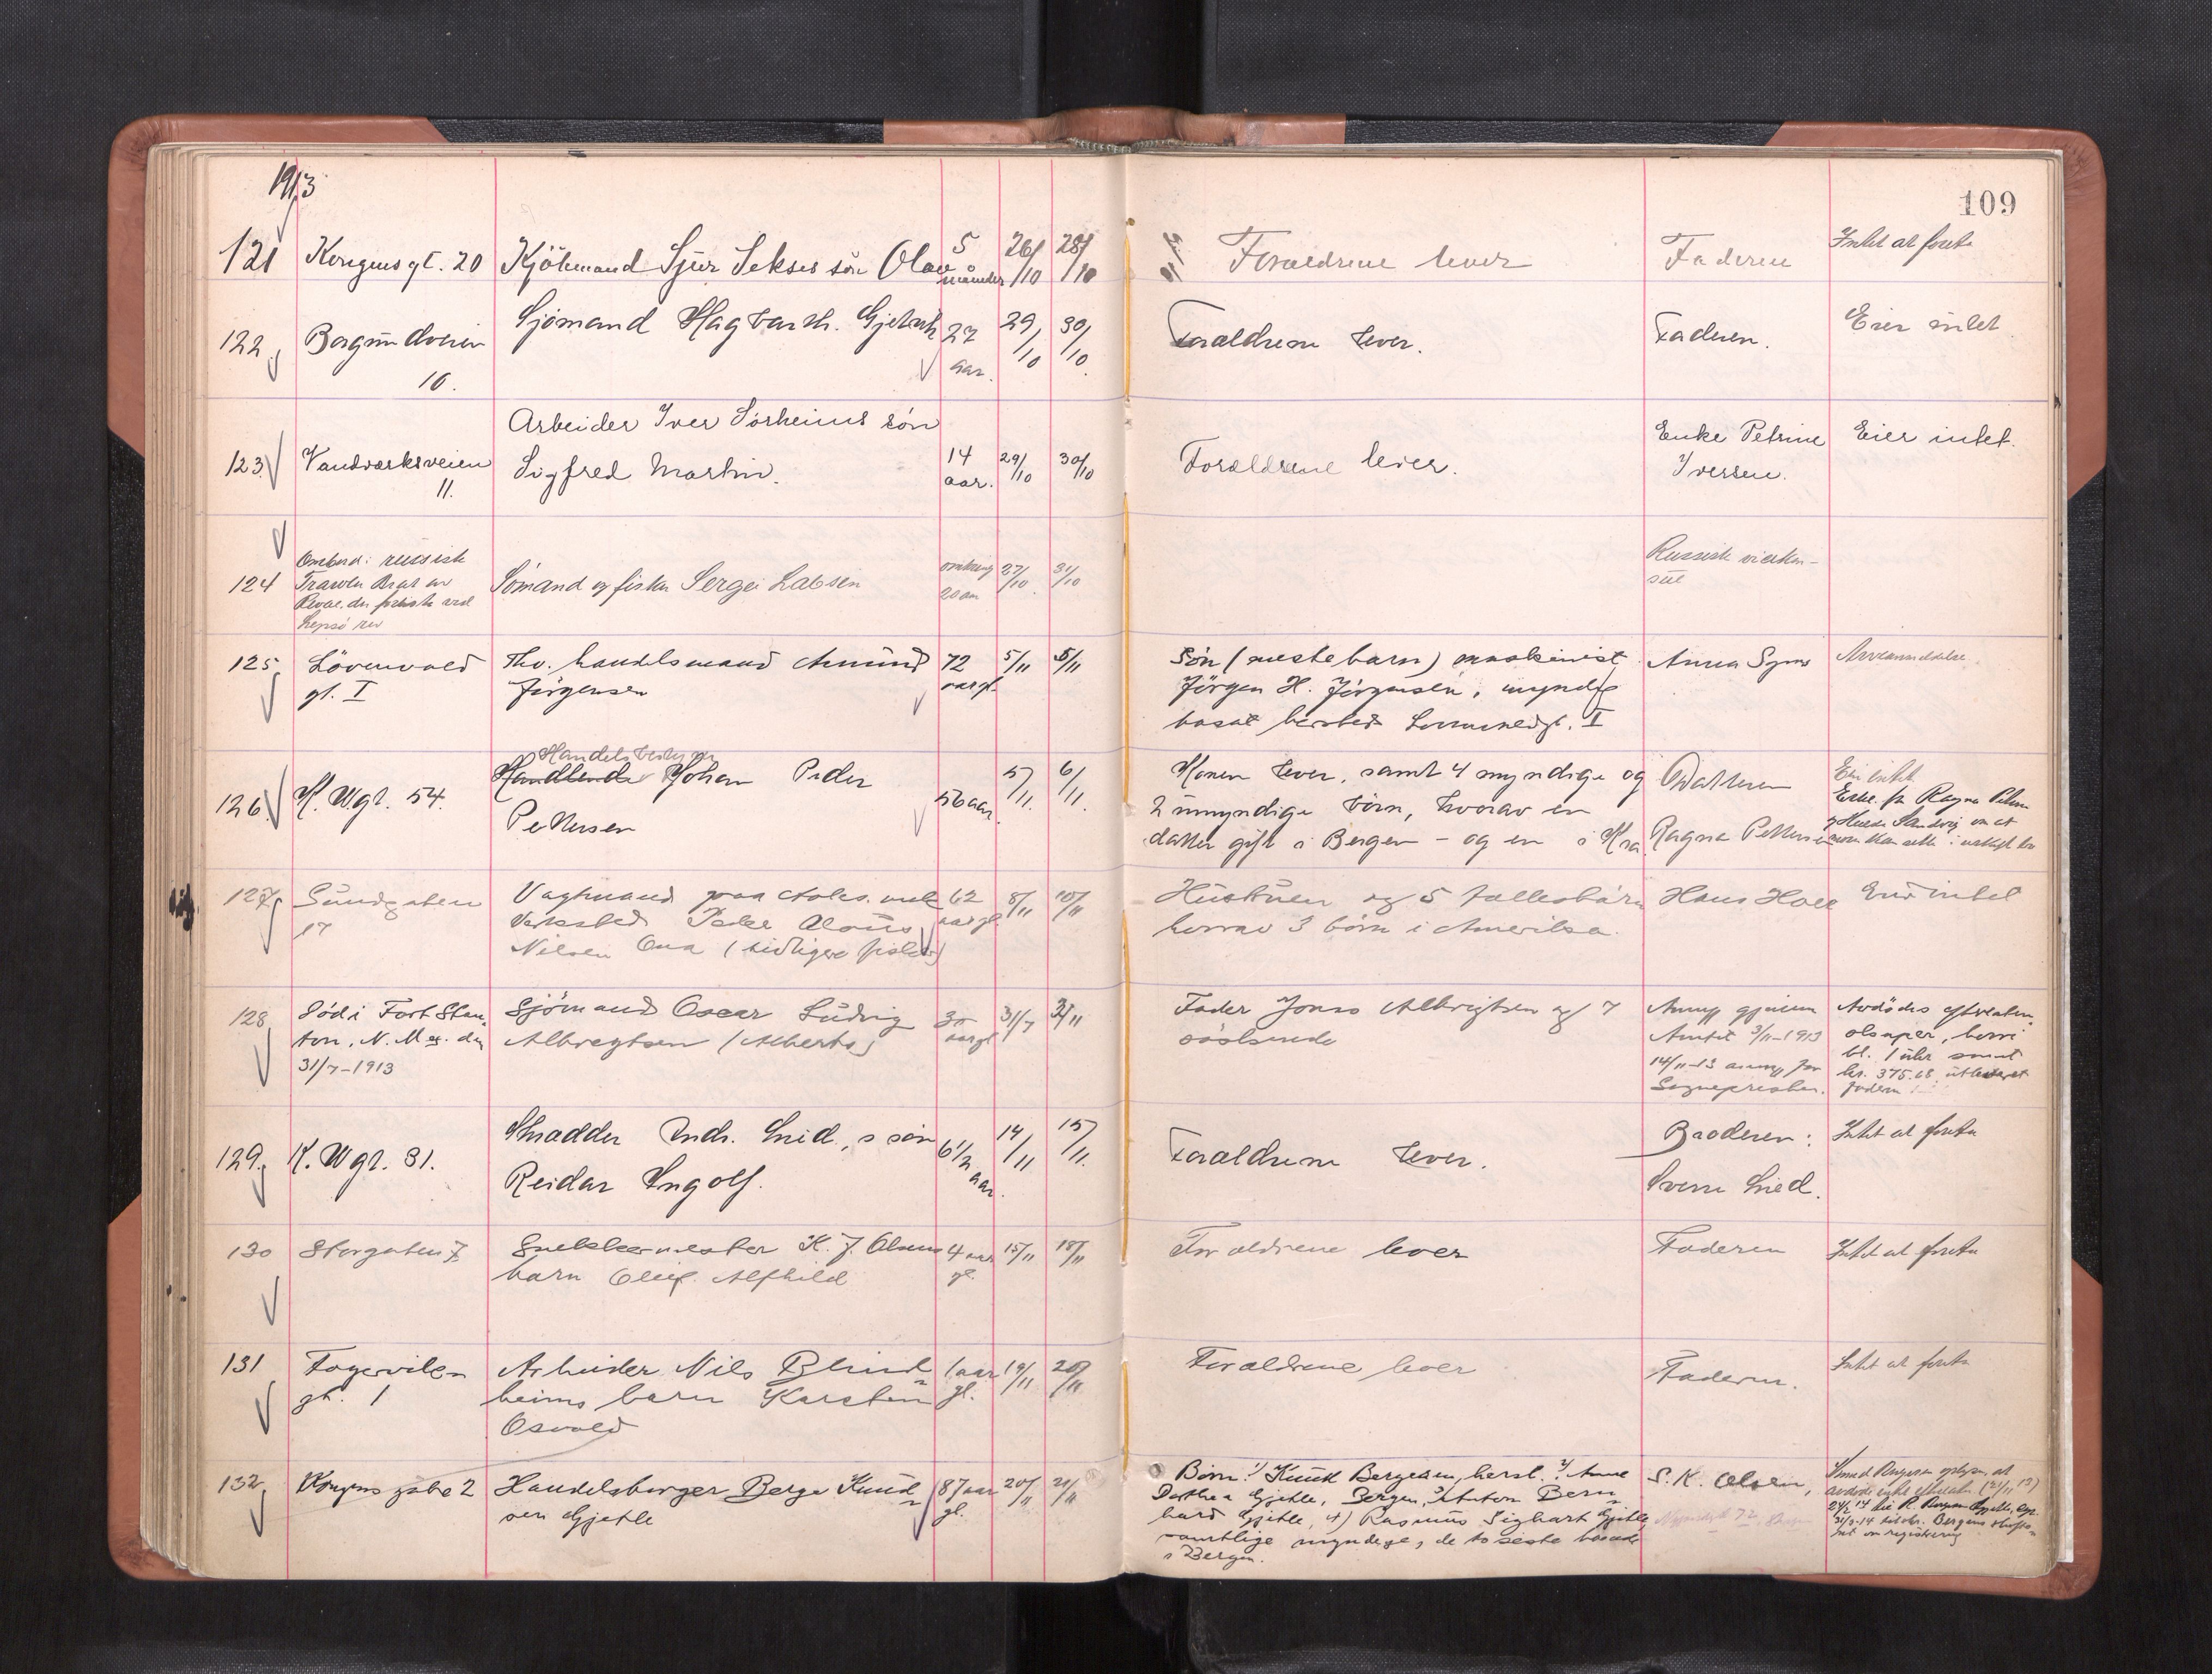 1913
109
121 Kongensgt. 20 Kjöbmand Sjur Sekses sön Olav 5 maaneder 26/10 28/10 Forældrene lever Faderen Intet at foreta
122 Borgundveien 16. Sjömand Hagbarth. Gjelseth 27 aar. 29/10 30/10. Forældrene lever. Faderen. Eier intet
123 Vandværksveien 11. Arbeider Iver Sörheims sön
Sigfred Martin. 14 aar. 29/10 30/10 Forældrene lever. Enke Petrine Iversen. Eier intet.
124 Ombord i russisk
Trawler
Reval. der forliste ved
Lepsö rev
Sömand og fisker Sergei Labsen omkring 20 aar 27/10. 31/10 Russisk vicekon-
sul
125 Lövenvold
gt. I
Fhv. handelsmand Amund
Jörgensen 72 aar gl. 5/11 5/11
Sön (neste barn) maskinist
Jörgen H. Jörgensen, myndig
bosat hersteds gt. I
Anna Syms
126. K. Wgt. 54. Handelsbestyrer
Handlende Johan Peder
Pettersen 56 aar. 5/11. 6/11.
Konen lever, samt 4 myndige og
2 umyndige börn, hvorav en
datter gift i Bergen - og en i Kra.
Datteren
Ragna Pettersen
Eier intet
127 Sundgaten
17
Vagtmand paa Aales. mek
Verksted Peder
Nilsen Ona (tidligere fisker)
62 aar gl. 8/11 10/11
Hustruen og 5 fællesbörn
hvorav 3 börn i Amerika.
Hans Eier intet
128 Död i Fort Stan-
ton, N. Mex. den
31/7-1913
Sjömand Oscar Ludvig
Albregtsen (Alberts)
35 aar gl 31/7 3/11
Fader Jonas Albrigtsen og 7
söskende
Anm. gjennem
Amtet 3/11-1913
14/11-13 anm. fra
Sognepresten.
Avdödes efterladen.
bl. 1 uhr samt
kr. 375.68 utleveret
faderen
129 K. Wgt. 31. Skrædder Andr. Lied's sön
Reidar Ingolf. 6 1/2 aar. 14/11 15/11. Forældrene lever. Broderen:
Sverre Lied. Intet at foreta
130 Storgaten 7. Snekkermester K. J. Olsens
barn Alfhild 4 aar gl. 15/11 18/11 Forældrene lever Faderen Intet at foreta
131 Fagervik-
gt. 1
Arbeider Nils Blind-
heims barn Karsten
Osvald
1 aar gl. 19/11 20/11 Forældrene lever Faderen. Intet at foreta
132 Kongens gate 2 Handelsborger Berge Knud-
sen Gjethle 87 aar gl. 20/11 21/11
Börn: 1) Knut Bergesen, herst. 2) Anne
Dorthea Gjethle, Bergen, 3) Anton Bern-
hard Gjethle, 4) Rasmus Sighart Gjethle
samtlige myndige, de to siste bosat
i Bergen.
S. K. Olsen,